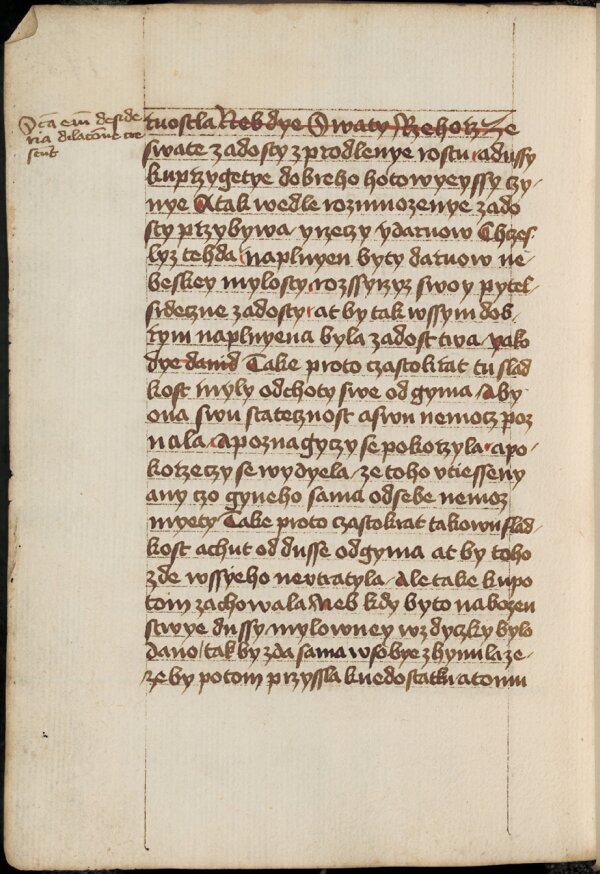 Sca em deside
ria dilacone cre
scut
tuostla Neb dye Swaty Rzehorz Ze
swate zadosty zprodlenye rostu a dussy
kuprzygetye dobreho hotowyeyssy czy
nye Atak wedle rozmnozenye zado
sty przybywa yrzeczy ydaruow Chczes
lyz tehda naplnyen byty daruow ne
beskey mylosty rozssyrzyz swoy pytel
sdeczne zadosty at by tak wssym dob
rym naplnyena byla zadost twa yako
dye david Take proto czastokrat tu slad
kost myly odchoty swe odgyma Aby
ona swu statecznost aswu nemocz poz
nala Apoznagyczy se pokorzyla apo
korzeczy se wydyela ze toho vtiesseny
any czo gyneho sama odsebe nemoz
myety Take proto czastokrat takowu slad
kost achut od dusse odgyma at by toho
zde wssyeho neztratyla Ale take kupo
tom zachowala Neb kdy byto nabozen
stwye dussy mylowney wzdyczky bylo
dano tak by zda sama wsobye zhynula ze
ze by potom przyssla knedostatku atomu